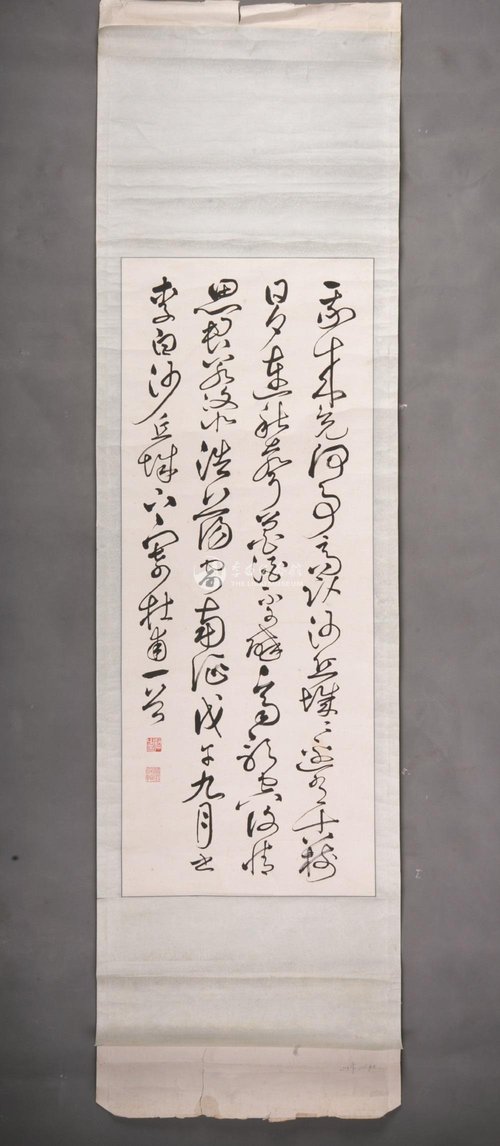 我來竟何事高臥沙丘城〻邊有古樹
日夕連秋聲魯酒不可醉齊歌空復情
思君若汶水浩蕩寄南征戊午九月書
李白沙丘城下寄杜甫一首
THE LIBAI MUSEUM